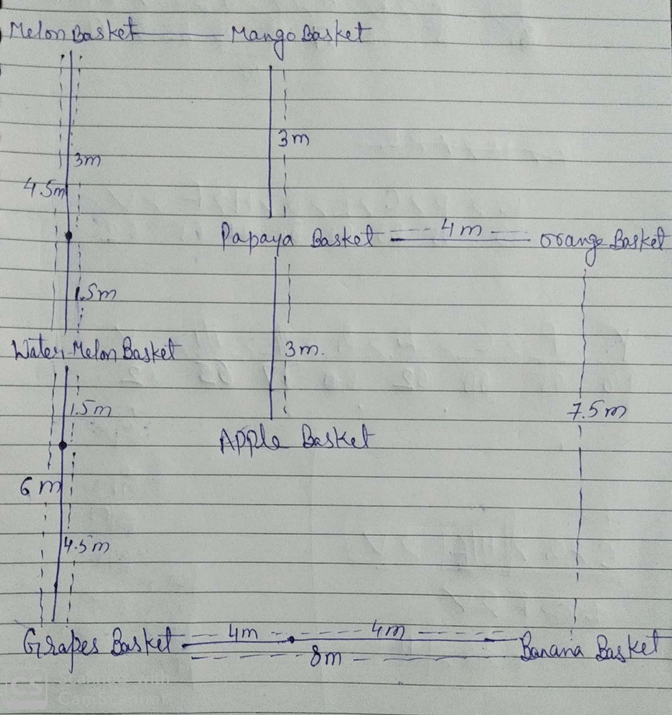 Melon Basket Mango Basket
3m
3m
4.5m
Papaya Basket 4m Orange Basket
1.5m
Water Melon Basket 3m.
1.5m 7.5m
Apple Basket
6m
4.5m
Grapes Basket 4m 4m Banana Basket
8m
CS